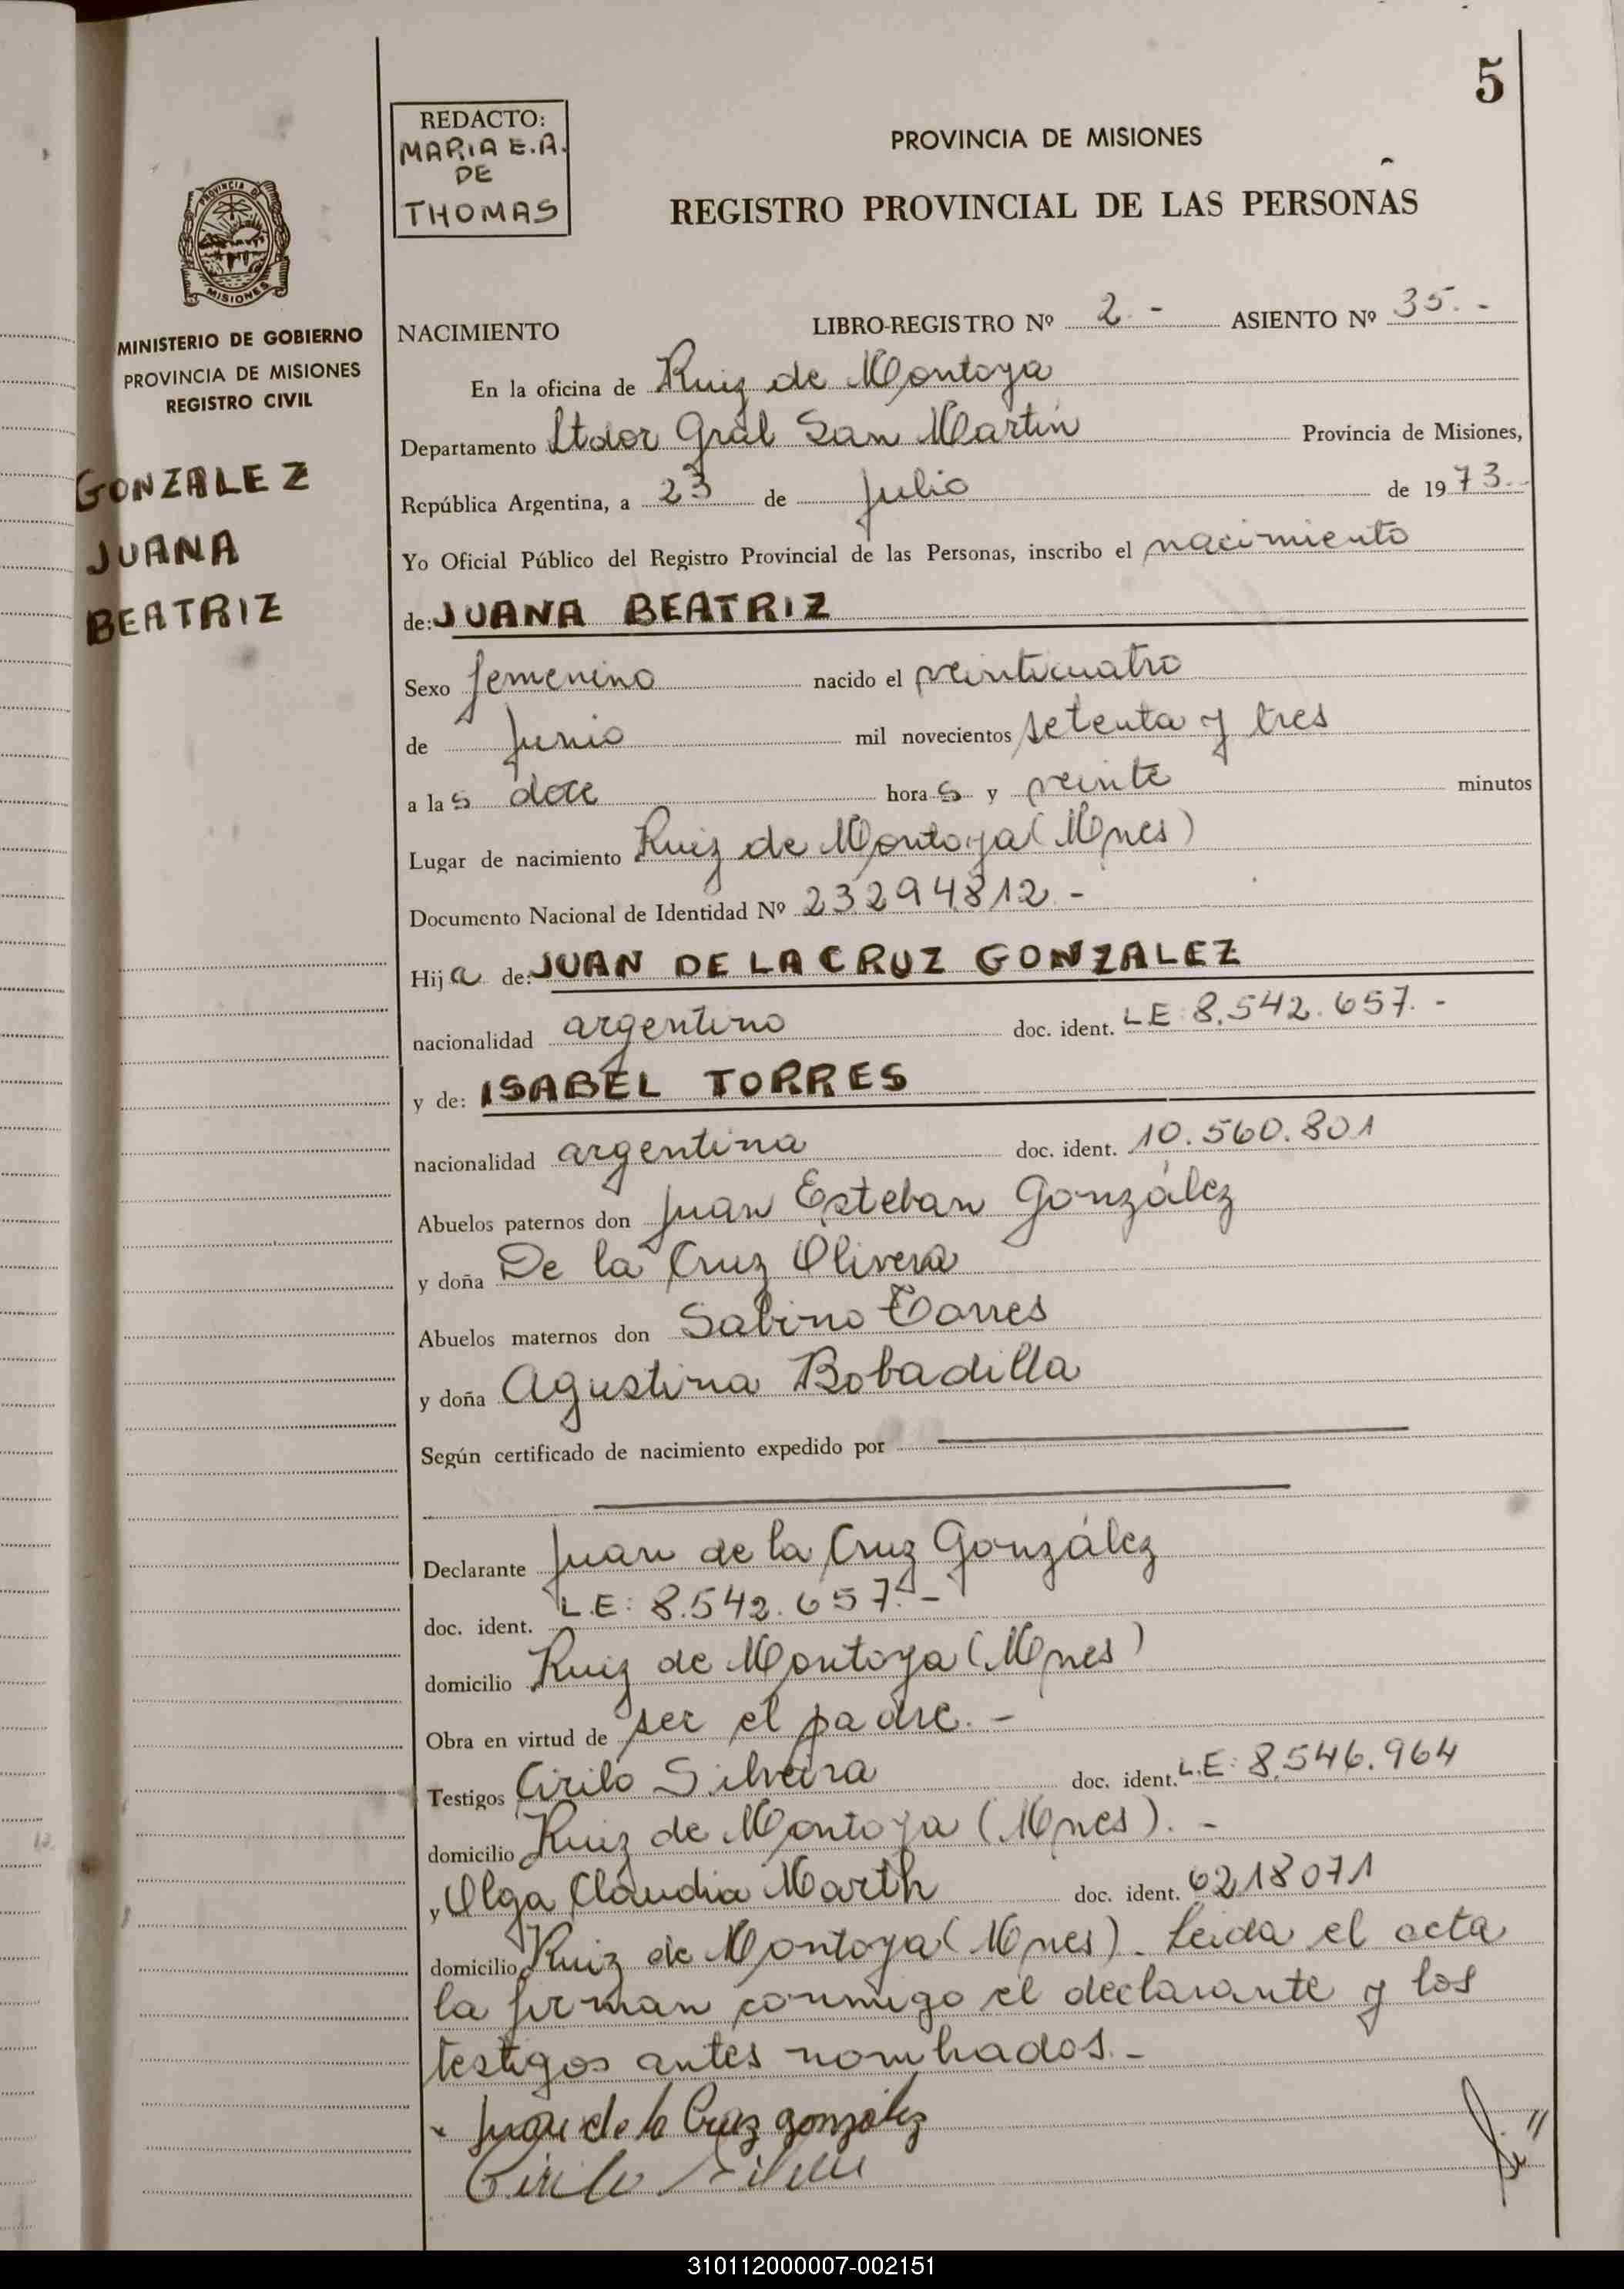 5
REDACTO:
MARIA E.A.
DE
THOMAS
PROVINCIA DE MISIONES
REGISTRO PROVINCIAL DE LAS PERSONAS
PROVINCIA DE
MISIONES
MINISTERIO DE GOBIERNO
PROVINCIA DE MISIONES
REGISTRO CIVIL
GONZALEZ
JUANA
BEATRIZ
NACIMIENTO LIBRO-REGISTRO Nº 2 - ASIENTO Nº 35. -
En la oficina de Ruiz de Montoya
Departamento Ltdor Gral San Martín Provincia de Misiones,
República Argentina, a 23 de Julio de 1973.-
Yo Oficial Público del Registro Provincial de las Personas, inscribo el nacimiento
de: JUANA BEATRIZ
Sexo femenino nacido el veinticuatro
de Junio mil novecientos setenta y tres
a las doce horas y veinte minutos
Lugar de nacimiento Ruiz de Montoya (Mnes)
Documento Nacional de Identidad Nº 23294812.-
Hija de: JUAN DE LA CRUZ GONZALEZ
nacionalidad argentino doc. ident. LE 8.542.657.-
y de: ISABEL TORRES
nacionalidad argentina doc. ident. 10.560.801
Abuelos paternos don Juan Esteban González
y doña De la Cruz Olivera
Abuelos maternos don Sabino Torres
y doña Agustina Bobadilla
Según certificado de nacimiento expedido por
Declarante Juan de la Cruz González
doc. ident. L.E: 8.542.657.-
domicilio Ruiz de Montoya (Mnes)
Obra en virtud de ser el padre.-
Testigos Cirilo Silveira doc. ident. L.E: 8.546.964
domicilio Ruiz de Montoya (Mnes).-
y Olga Claudia Marth doc. ident. 6218071
domicilio Ruiz de Montoya (Mnes). Leida el acta
la firman conmigo el declarante y los
testigos antes nombados.-
Juan de la Cruz gonzalez
Cirilo
310112000007-002151